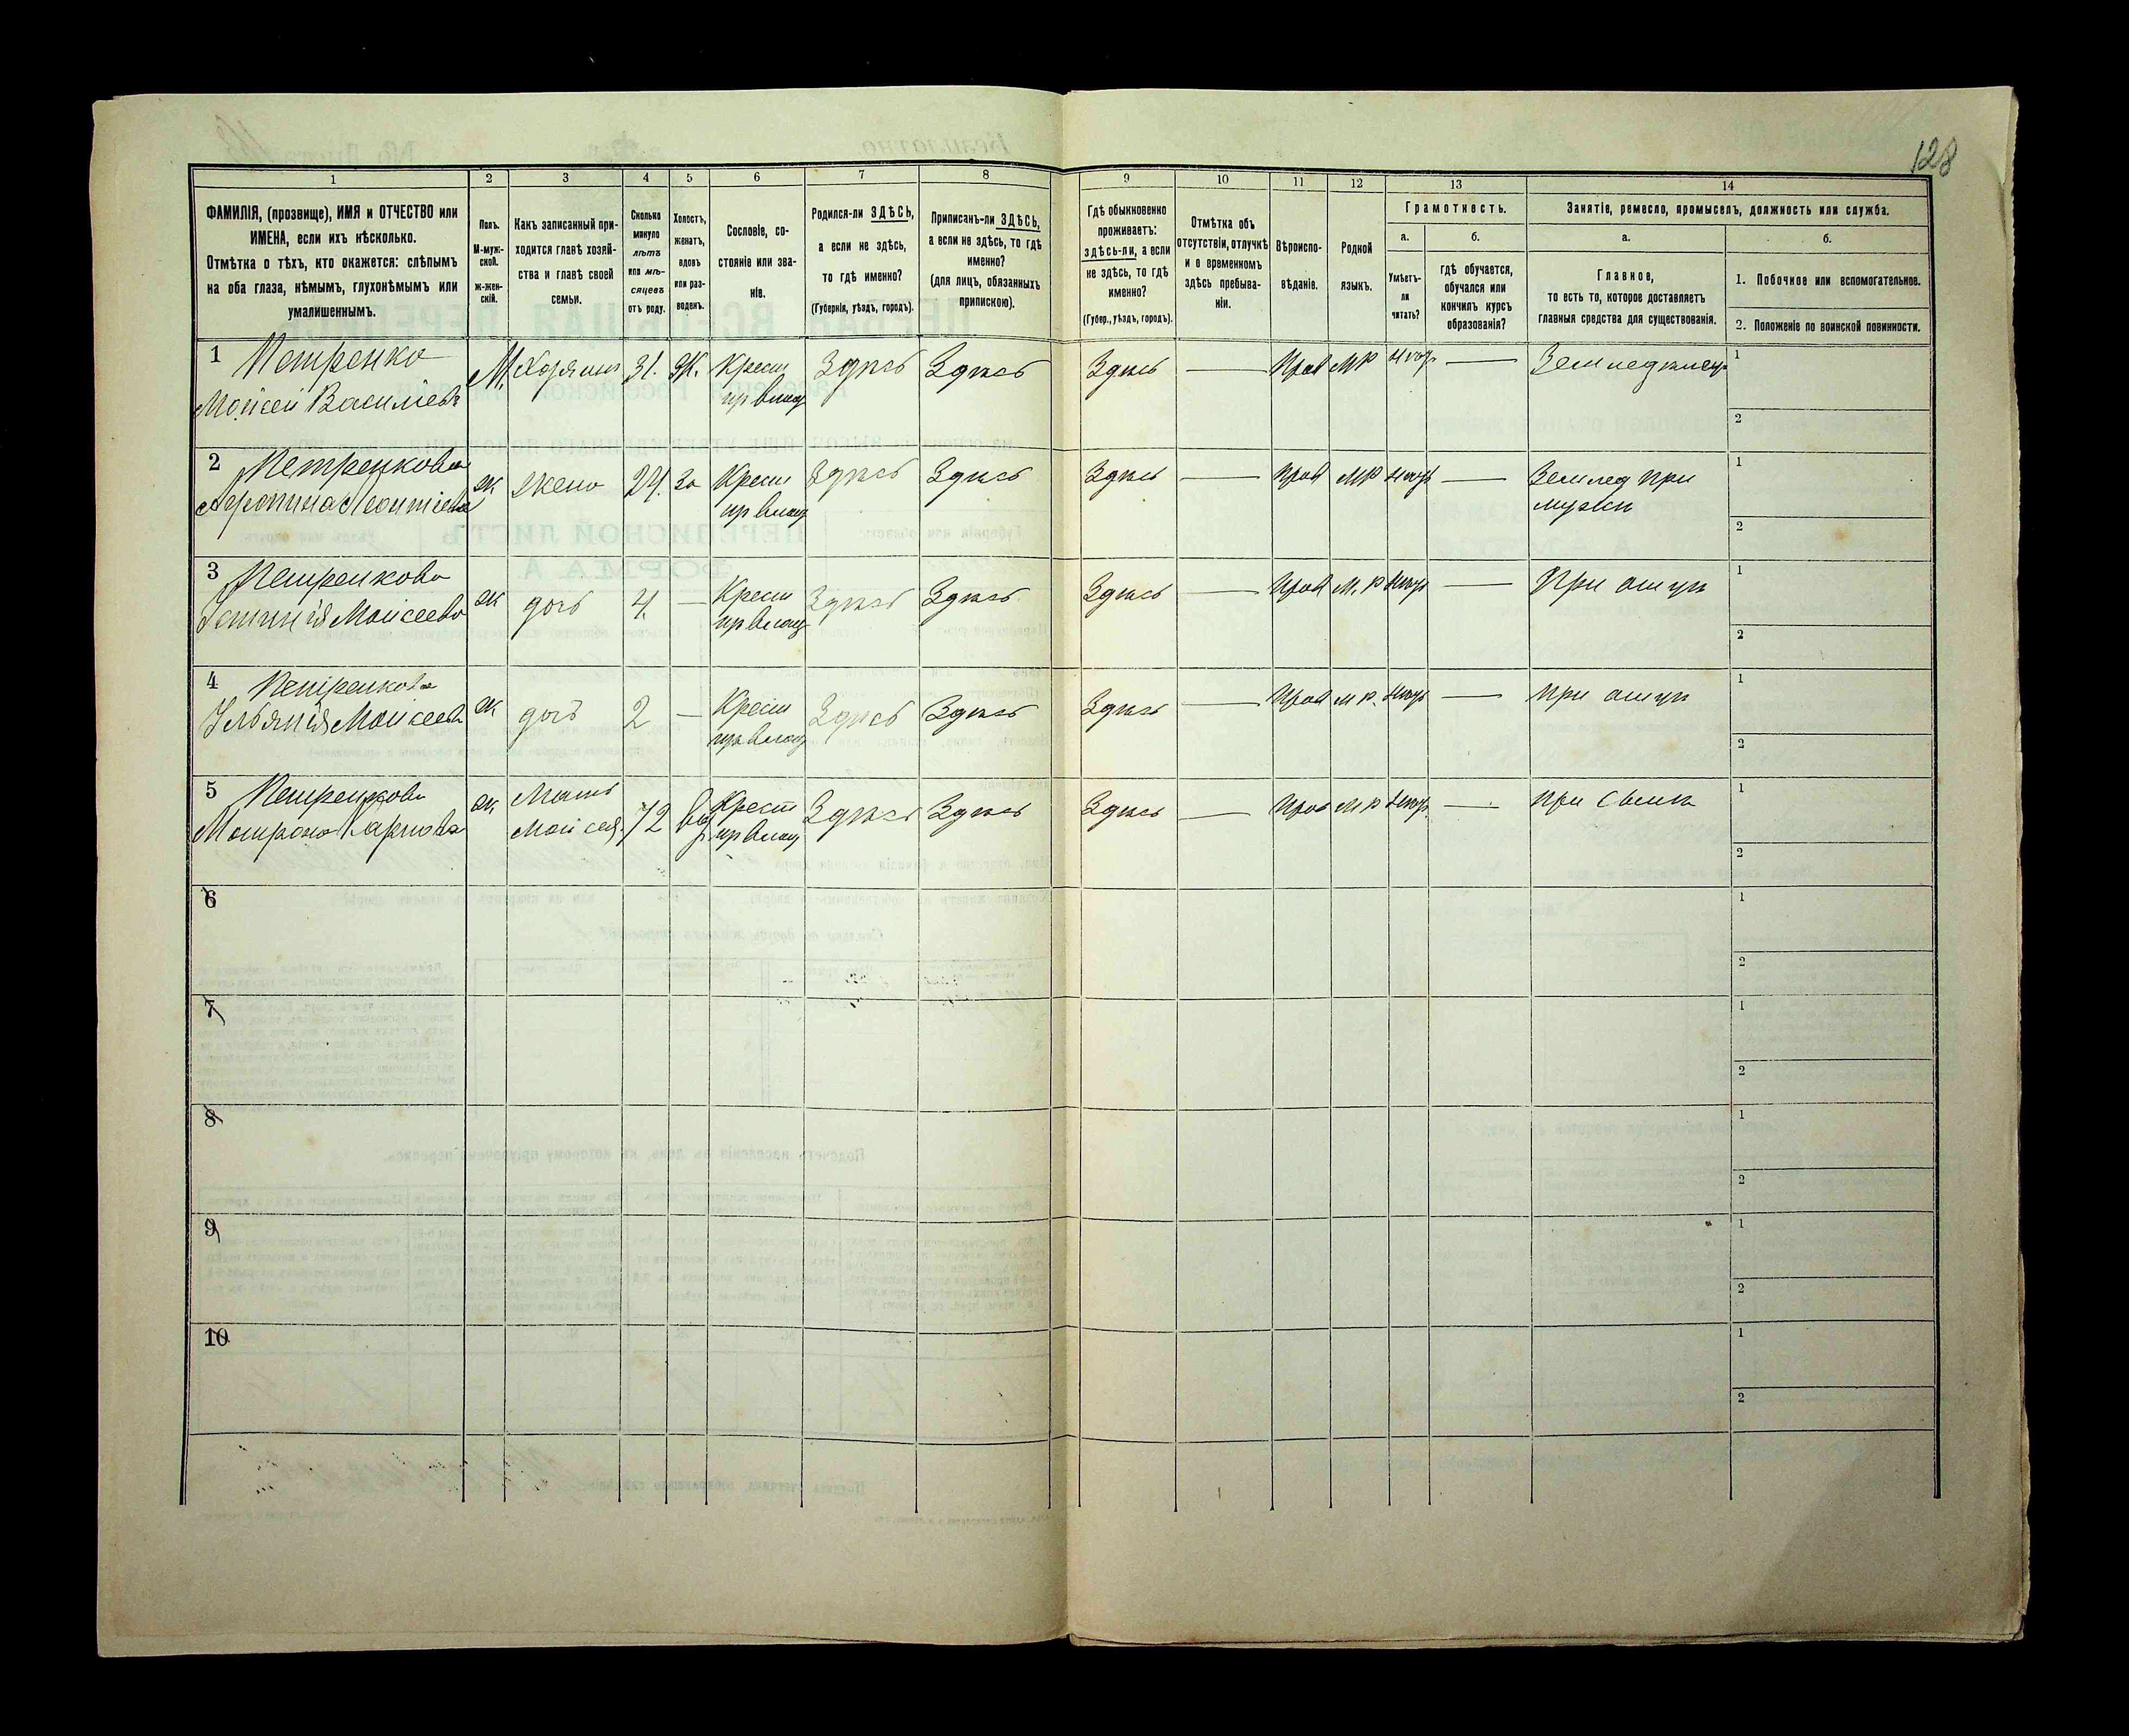 128
1 2 3 4 5 6 7 8 9 10 11 12 13 14
ФАМИЛІЯ, (прозвище), ИМЯ и ОТЧЕСТВО или
ИМЕНА, если ихъ нѣсколько.
Отмѣтка о тѣхъ, кто окажется: слѣпымъ
на оба глаза, нѣмымъ, глухонѣмымъ или
умалишеннымъ.
Полъ.
М-муж-
ской.
ж-жен-
скій.
Какъ записанный при-
ходится главѣ хозяй-
ства и главѣ своей
семьи.
Сколько
минуло
лѣтъ
или мѣ-
сяцевъ
отъ роду.
Холостъ,
женатъ,
вдовъ
или раз-
веденъ.
Сословіе, со-
стояніе или зва-
ніе.
Родился-ли ЗДѢСЬ,
а если не здѣсь,
то гдѣ именно?
(Губернія, уѣздъ, городъ).
Приписанъ-ли ЗДѢСЬ,
а если не здѣсь, то гдѣ
именно?
(для лицъ, обязанныхъ
припискою).
Гдѣ обыкновенно
проживаетъ:
здѣсь-ли, а если
не здѣсь, то гдѣ
именно?
(Губер., уѣздъ, городъ).
Отмѣтка объ
отсутствіи, отлучкѣ
и о временномъ
здѣсь пребыва-
ніи.
Вѣроиспо-
вѣданіе.
Родной
языкъ.
Грамотность.
а.
Умѣетъ-
ли
читать?
б.
гдѣ обучается,
обучался или
кончилъ курсъ
образованія?
Занятіе, ремесло, промыселъ, должность или служба.
а.
Главное,
то есть то, которое доставляетъ
главныя средства для существованія.
б.
1. Побочное или вспомогательное.
2. Положеніе по воинской повинности.
1 Петренко М. Хозяинъ 31. Ж. Крест Здѣсь Здѣсь Здѣсь — Прав МР негр. — Земледѣлец 1
Мойсей Василіевъ пр влад 2
2 Петренкова ж жена 24 за Крест Здѣсь Здѣсь Здѣсь — Прав МР негр — Землед при 1
Леонтіева пр влад мужи 2
3 Петренкова ж дочь 4 — Крест Здѣсь Здѣсь Здѣсь — Прав М. Р негр — При отцѣ 1
Устинія Моисеева пр влад 2
4 Петренкова ж дочь 2 — Крест Здѣсь Здѣсь Здѣсь — Прав М Р. негр — при отцѣ 1
Ульянія Моисеева пр влад 2
5 Петренкова ж Мать 72 вд Крест Здѣсь Здѣсь Здѣсь — Прав М Р негр. — при сынѣ 1
Матрона Карпова Мойсея пр влад 2
6 1
2
7 1
2
8 1
2
9 1
2
10 1
2